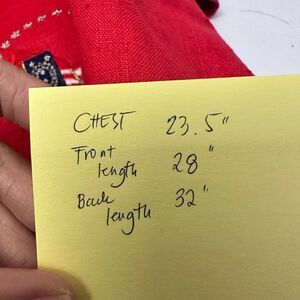 CHEST 23.5"
Front
length 28"
Back
length 32"